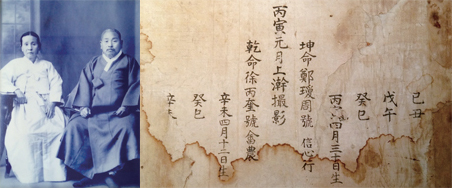 己丑
戊午
癸巳
丙 四月三十日生
坤命鄭瓊周號 信心行
丙寅元月上澣撮影
乾命徐丙奎號 農
辛未四月十二日生
癸巳
辛